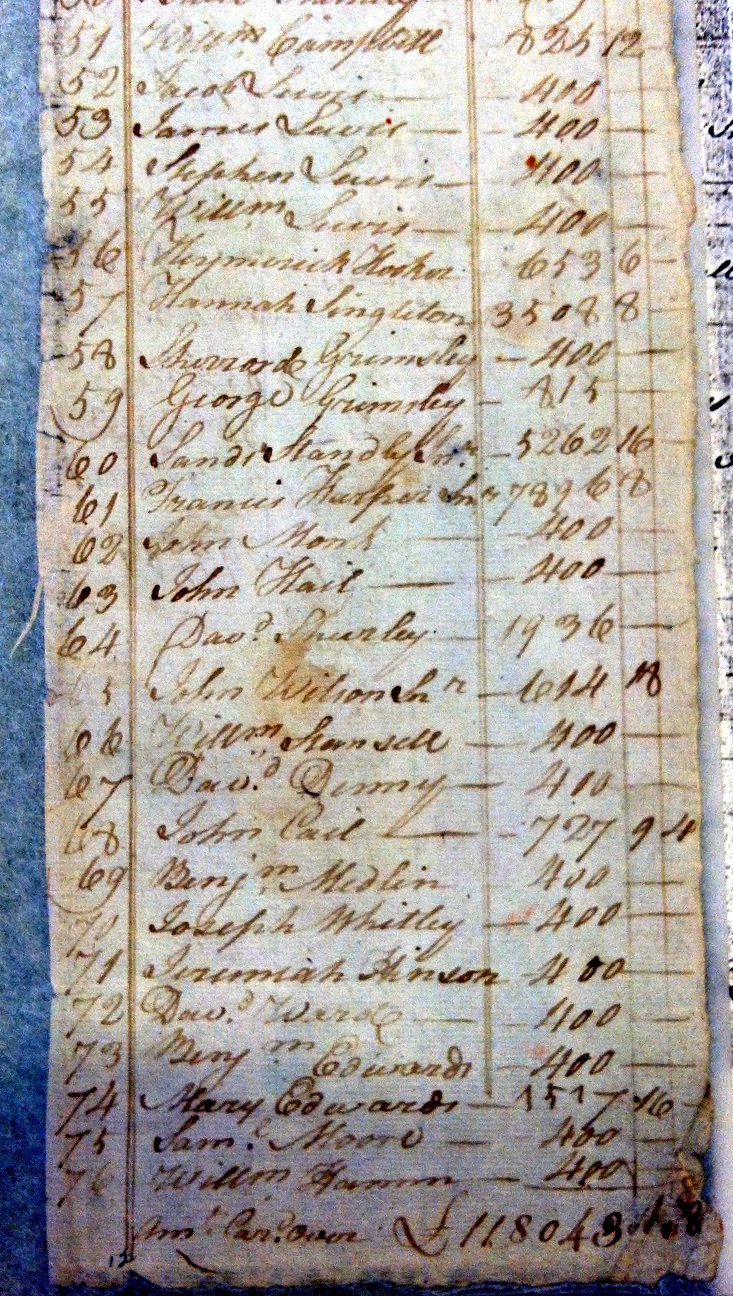 51 Willm Campbell 825 12
52 Jacob Lewis — 400 —
53 James Lewis — 400 —
54 Stephen Lewis — 400 —
55 Willm Lewis — 400 —
56 653 6 —
57 Hannah Singleton 3508 8 —
58 Sherrord Grimsley — 400 —
59 George Grimsley — 815 —
60 Sands Standly Snr — 5262 16
61 Francis Harper Snr 7896 8
62 John Monk — 400 —
63 John Hail — 400 —
64 Davd Shurley — 1936 —
65 John Wilson Snr — 614 18
66 Willm Stansell — 400 —
67 Davd Denny — 400 —
68 John Cail — 727 9 4
69 Benjm Medlin — 400 —
70 Joseph Whitley — 400 —
71 Jeremiah Hinson — 400 —
72 Davd Ward — 400 —
73 Benjm Edwards — 400 —
74 Mary Edwards — 1517 16 —
75 Saml Moore — 400 —
76 Willm Hamm — 400 —
Amt Card over £118043 8